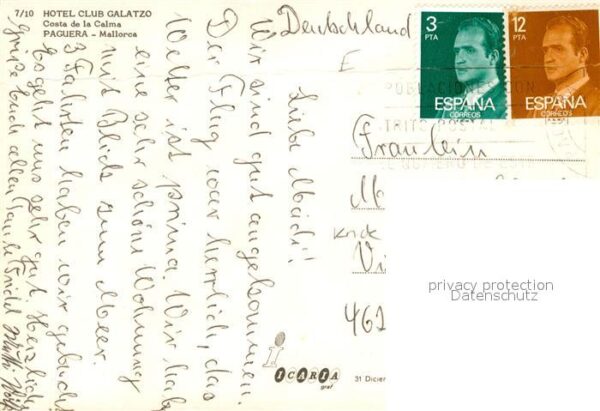 7/10 HOTEL CLUB GALATZO
Costa de la Calma
PAGUERA - Mallorca
Liebe Maidi!
Wir sind gut angekommen.
Der Flug war herrlich, das
Wetter ist prima. Wir haben
eine sehr schöne Wohnung
mit Blick zum Meer.
3 Fahrten haben wir gebucht
Es geht uns sehr gut Herzlich
Grüße Euch allen Tante Friedel
Deutschland
3
PTA
ESPAÑA
CORREOS
12
PTA
ESPAÑA
CORREOS
Fräulein
462
privacy protection
Datenschutz
ICARIA
graf
31 Dicier